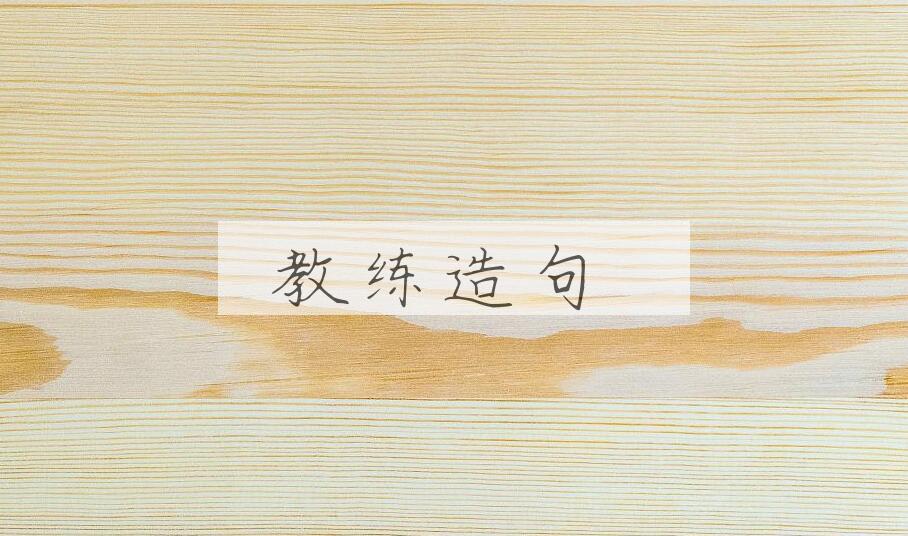 教练造句